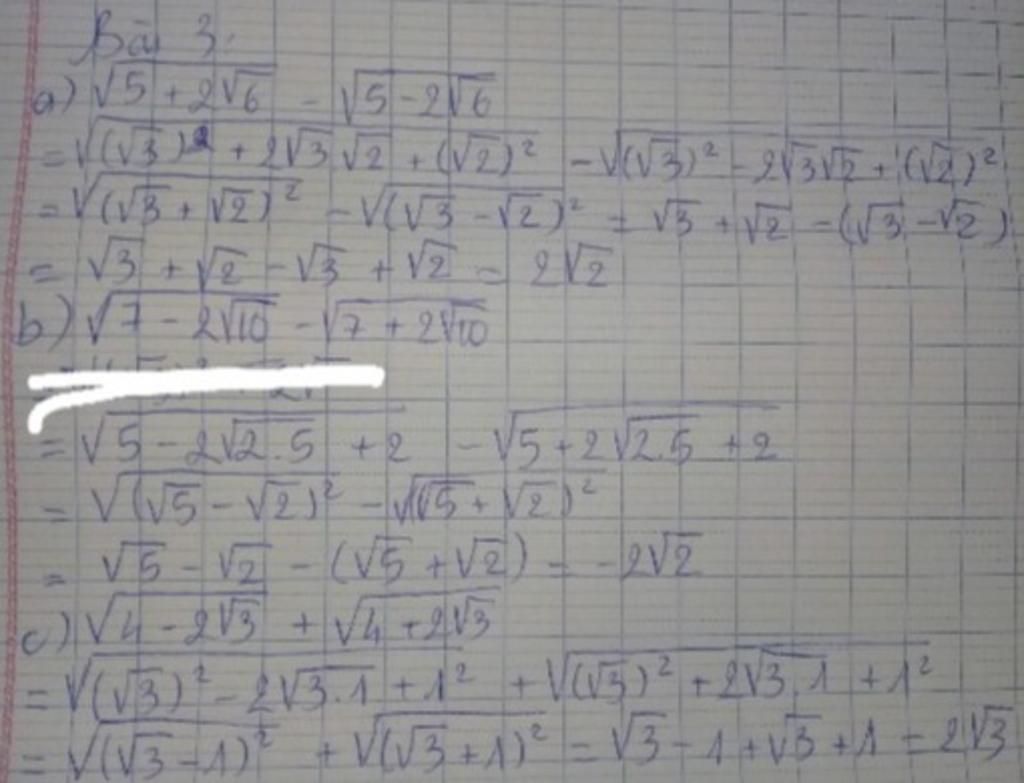 Bài 3:
a) √(5 + 2√6) - √(5 - 2√6)
= √((√3)² + 2√3.√2 + (√2)²) - √((√3)² - 2√3√2 + (√2)²)
= √((√3 + √2)²) - √((√3 - √2)²) = √3 + √2 - (√3 - √2)
= √3 + √2 - √3 + √2 = 2√2
b) √(7 - 2√10) - √(7 + 2√10)
= √(5 - 2√(2.5) + 2) - √(5 + 2√(2.5) + 2)
= √((√5 - √2)²) - √((√5 + √2)²)
= √5 - √2 - (√5 + √2) = -2√2
c) √(4 - 2√3) + √(4 + 2√3)
= √((√3)² - 2√(3.1) + 1²) + √((√3)² + 2√(3.1) + 1²)
= √((√3 - 1)²) + √((√3 + 1)²) = √3 - 1 + √3 + 1 = 2√3